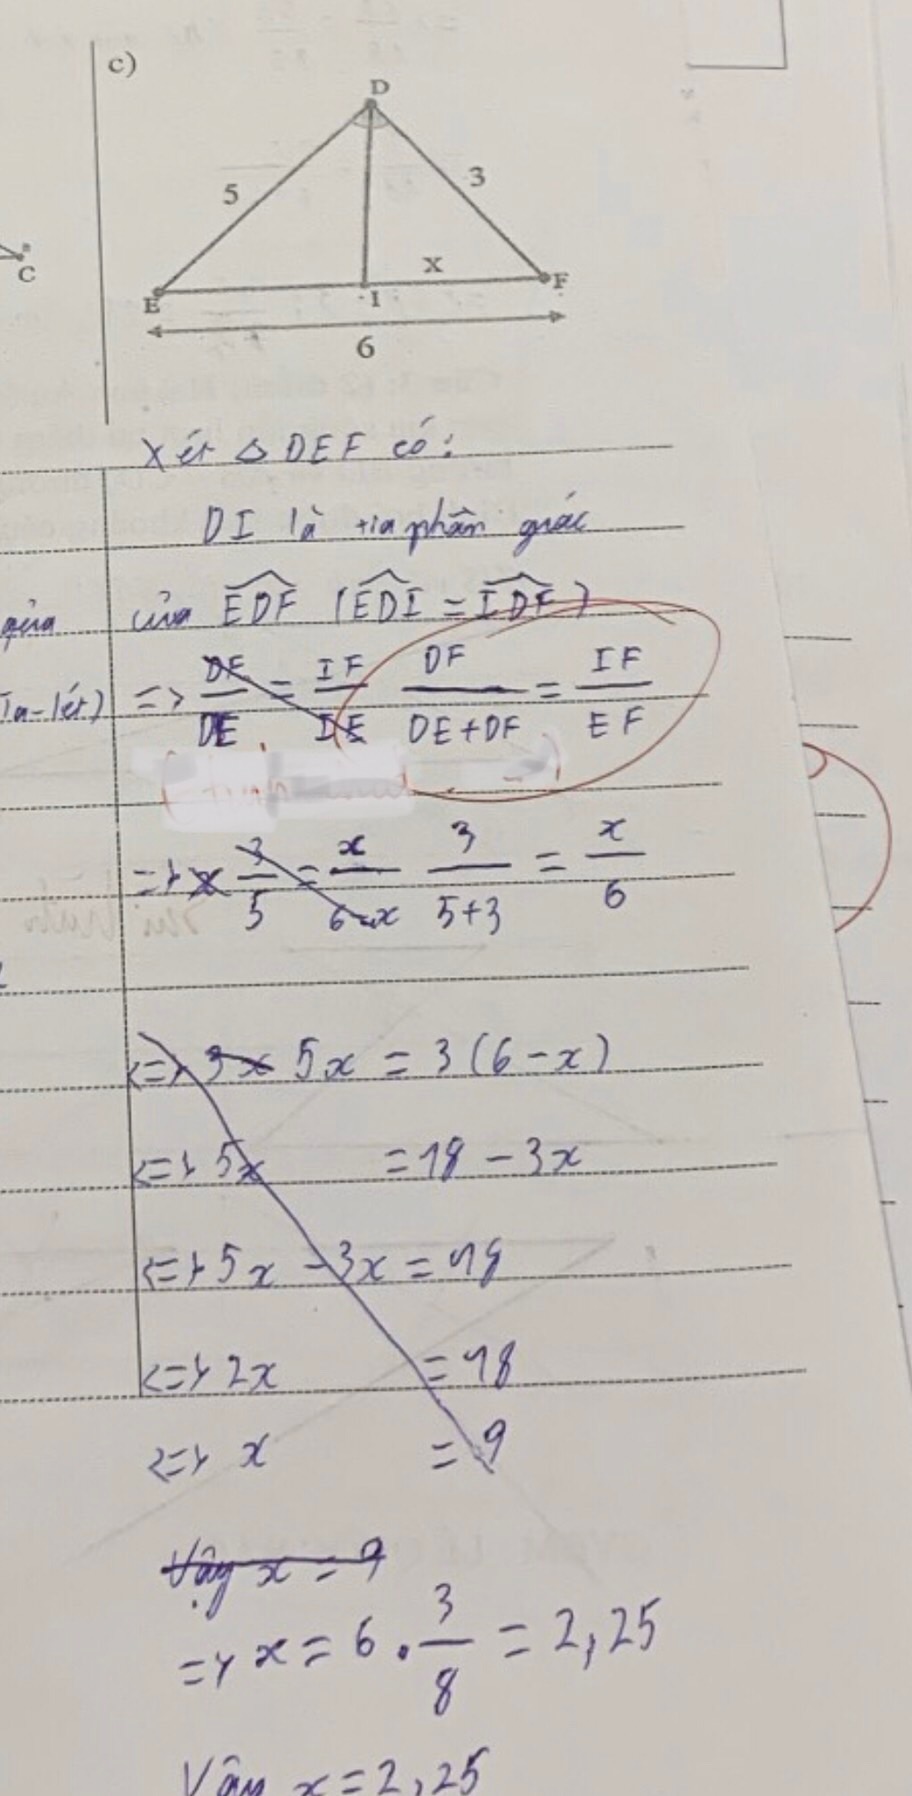 c)
D
5
3
x
C
E
I
F
6
Xét △ DEF có:
DI là tia phân giác
của EDF (EDI = IDF)
Ta-lét)
=> DF/DE = IF/IE DF/DE+DF = IF/EF
=> x 3/5 = x/6-x 3/5+3 = x/6
<=> 3x 5x = 3(6-x)
<=> 5x = 18 - 3x
<=> 5x - 3x = 18
<=> 2x = 18
<=> x = 9
Vậy x = 9
=> x = 6 . 3/8 = 2,25
Vậy x = 2,25